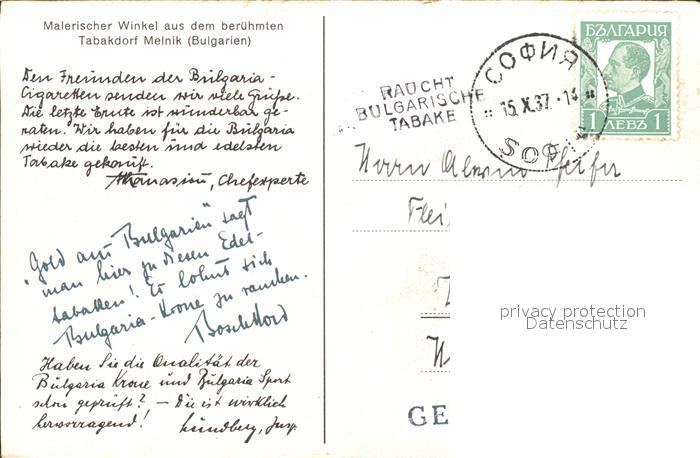 Malerischer Winkel aus dem berühmten
Tabakdorf Melnik (Bulgarien)
Den Freunden der Bulgaria-
Cigaretten senden wir viele Grüße.
Die letzte Ernte ist wunderbar ge-
raten. Wir haben für die Bulgaria
wieder die besten und edelsten
Tabake gekauft.
Athanasiou, Chefexperte
"Gold aus Bulgarien" sagt
man hier zu diesen Edel-
tabaken! Es lohnt sich
Bulgaria-Krone zu rauchen.
Haben Sie die Qualität der
Bulgaria Krone und Bulgaria Sport
schon geprüft? – Die ist wirklich
hervorragend!
Lundberg, Insp.
RAUCHT
BULGARISCHE
TABAKE
СОФИЯ
15.X.37.-14
SOF
БЪЛГАРИЯ
1 ЛЕВЪ 1
Herrn
Flei
GE
privacy protection
Datenschutz